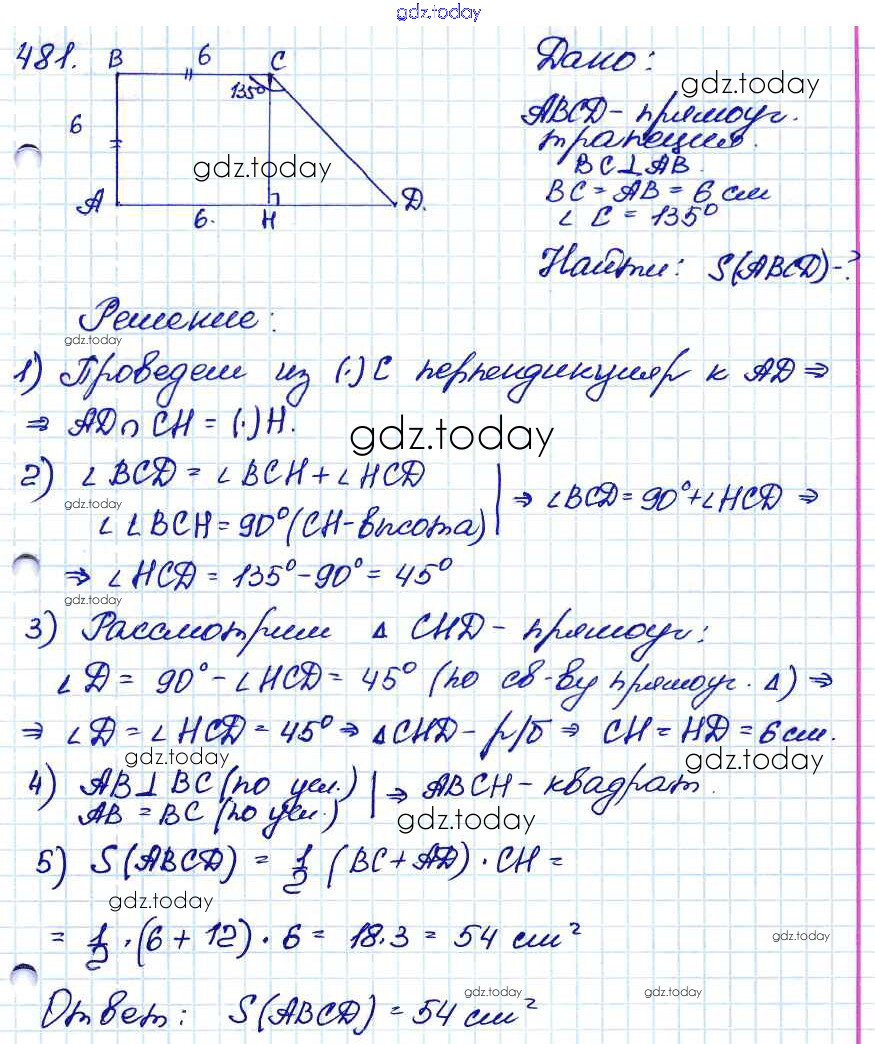 gdz.today
481. B 6 C
135°
6
A 6. H D.
Дано:
gdz.today
ABCD - прямоуг.
трапеция.
BC ⊥ AB.
BC = AB = 6 см
∠ C = 135°
gdz.today
Найти: S(ABCD)-?
Решение:
gdz.today
1) Проведем из (·)C перпендикуляр к AD ⇒
⇒ AD ∩ CH = (·)H.
gdz.today
2) ∠ BCD = ∠ BCH + ∠ HCD
gdz.today
∠ ∠ BCH = 90° (CH-высота) | ⇒ ∠BCD = 90° + ∠HCD ⇒
⇒ ∠ HCD = 135° - 90° = 45°
gdz.today
3) Рассмотрим Δ CHD - прямоуг:
∠ D = 90° - ∠ HCD = 45° (по св-ву прямоуг. Δ) ⇒
⇒ ∠ D = ∠ HCD = 45° ⇒ Δ CHD - р/б ⇒ CH = HD = 6 см.
gdz.today gdz.today
4) AB ⊥ BC (по усл.) | ⇒ ABCH - квадрат.
AB = BC (по усл.)
gdz.today
5) S(ABCD) = 1/2 (BC + AD) · CH =
gdz.today
= 1/2 · (6 + 12) · 6 = 18·3 = 54 см²
gdz.today
gdz.today gdz.today
Ответ: S(ABCD) = 54 см²